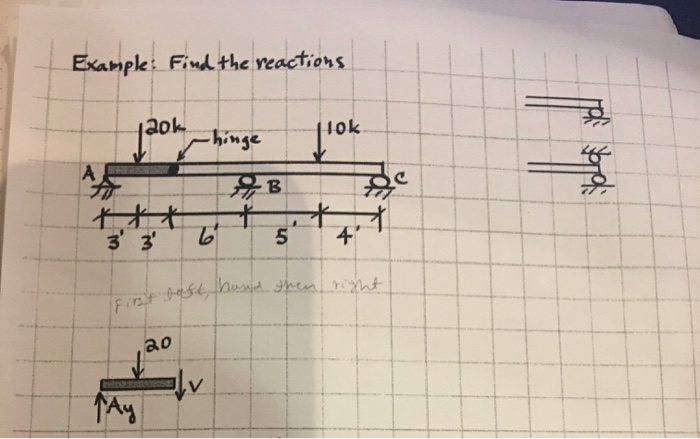 Example: Find the reactions
20k
hinge
10k
A
B
C
3' 3' 6' 5' 4'
First left, hand then right
20
Ay
V